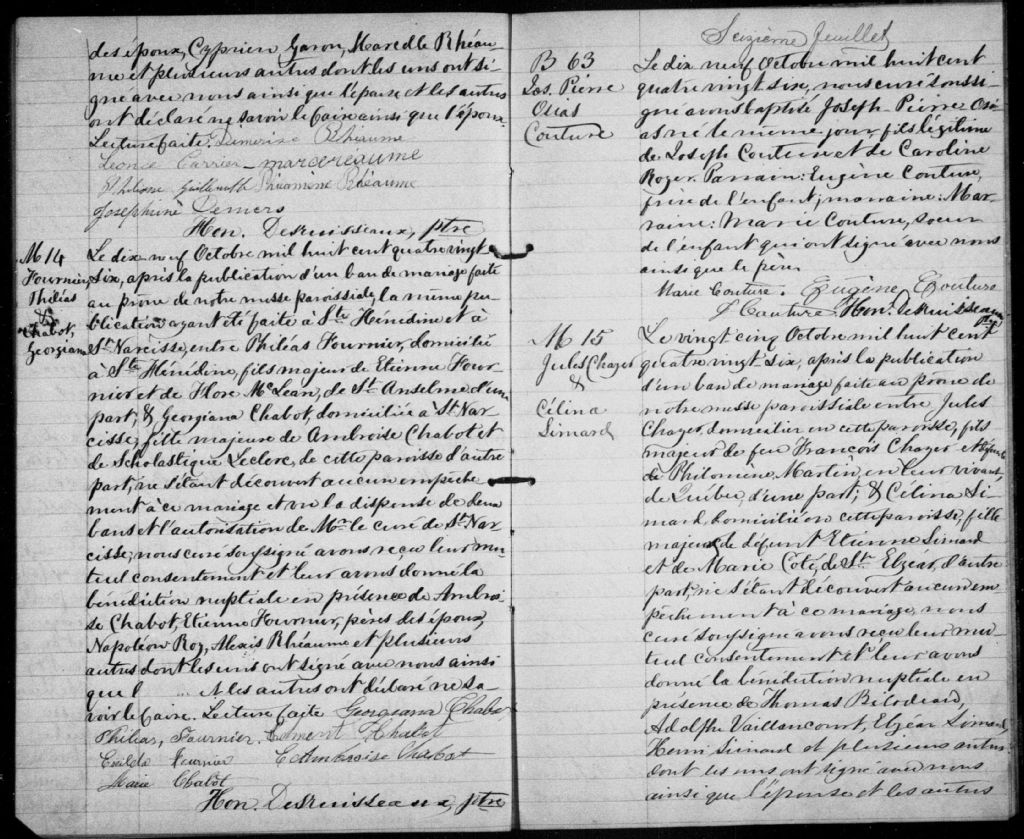 des époux, Cyprien Garon, Marcelle Rhéau-
me et plusieurs autres dont les uns ont si-
gné avec nous ainsi que l'épouse et les autres
ont déclaré ne savoir le faire ainsi que l'époux.
Lecture faite. Rhéaume
Leonce Carrier marcreaume
Philomène Rhéaume
Josephine Demers
Hon. Desruisseaux, ptre
M 14
Fournier,
Philias
&
Chabot,
Georgiana
Le dix-neuf Octobre mil huit cent quatre vingt
six, après la publication d'un ban de mariage faite
au prône de notre messe paroissiale, la même pu-
blication ayant été faite à Ste Hénédine et à
St Narcisse, entre Philéas Fournier, domicilié
à Ste Hénédine, fils majeur de Etienne Four-
nier et de Flore McLean, de St Anselme d'une
part, & Georgiana Chabot, domiciliée à St Nar-
cisse, fille majeure de Ambroise Chabot et
de Scholastique Leclerc, de cette paroisse d'autre
part, ne s'étant découvert aucun empêche
ment à ce mariage et vu la dispense de deux
bans et l'autorisation de Mr le curé de St Nar-
cisse, nous curé soussigné avons reçu leur mu-
tuel consentement et leur avons donné la
bénédiction nuptiale en présence de Ambroi-
se Chabot, Etienne Fournier, pères des époux,
Napoléon Roy, Alexis Rhéaume et plusieurs
autres dont les uns ont signé avec nous ainsi
que l et les autres ont déclaré ne sa-
voir le faire. Lecture faite Georgiana Chabot
Philias, Fournier. Chabot
Fournier Ambroise Chabot
Marie Chabot
Hon. Desruisseaux, ptre
Seizième feuillet
B 63
Jos. Pierre
Osias
Couture
Le dix neuf Octobre mil huit cent
quatre vingt six, nous curé soussi-
gné avons baptisé Joseph-Pierre Osi-
as né le même jour, fils légitime
de Joseph Couture et de Caroline
Roger. Parrain: Eugène Couture,
frère de l'enfant; marraine: Mar-
raine: Marie Couture, soeur
de l'enfant qui ont signé avec nous
ainsi que le père.
Marie Couture. Eugène Couture
J Couture Hon. Desruisseaux
ptre
M 15
Jules Chayer
&
Célina
Simard
Le vingt cinq Octobre mil huit cent
quatre vingt six, après la publication
d'un ban de mariage faite au prône de
notre messe paroissiale entre Jules
Chayer, domicilié en cette paroisse, fils
majeur de feu François Chayer et
de Philomène Martin, en leur vivant,
de Québec, d'une part; & Célina Si-
mard, domiciliée en cette paroisse, fille
majeure de défunt Etienne Simard
et de Marie Coté, de St. Elzéar, d'autre
part, ne s'étant découvert aucun em-
pêchement à ce mariage, nous
curé soussigné avons reçu leur mu-
tuel consentement et leur avons
donné la bénédiction nuptiale en
présence de Thomas Bilodeau,
Adolphe Vaillancourt, Elzéar Simard,
Henri Simard et plusieurs autres
dont les uns ont signé avec nous
ainsi que l'épouse et les autres